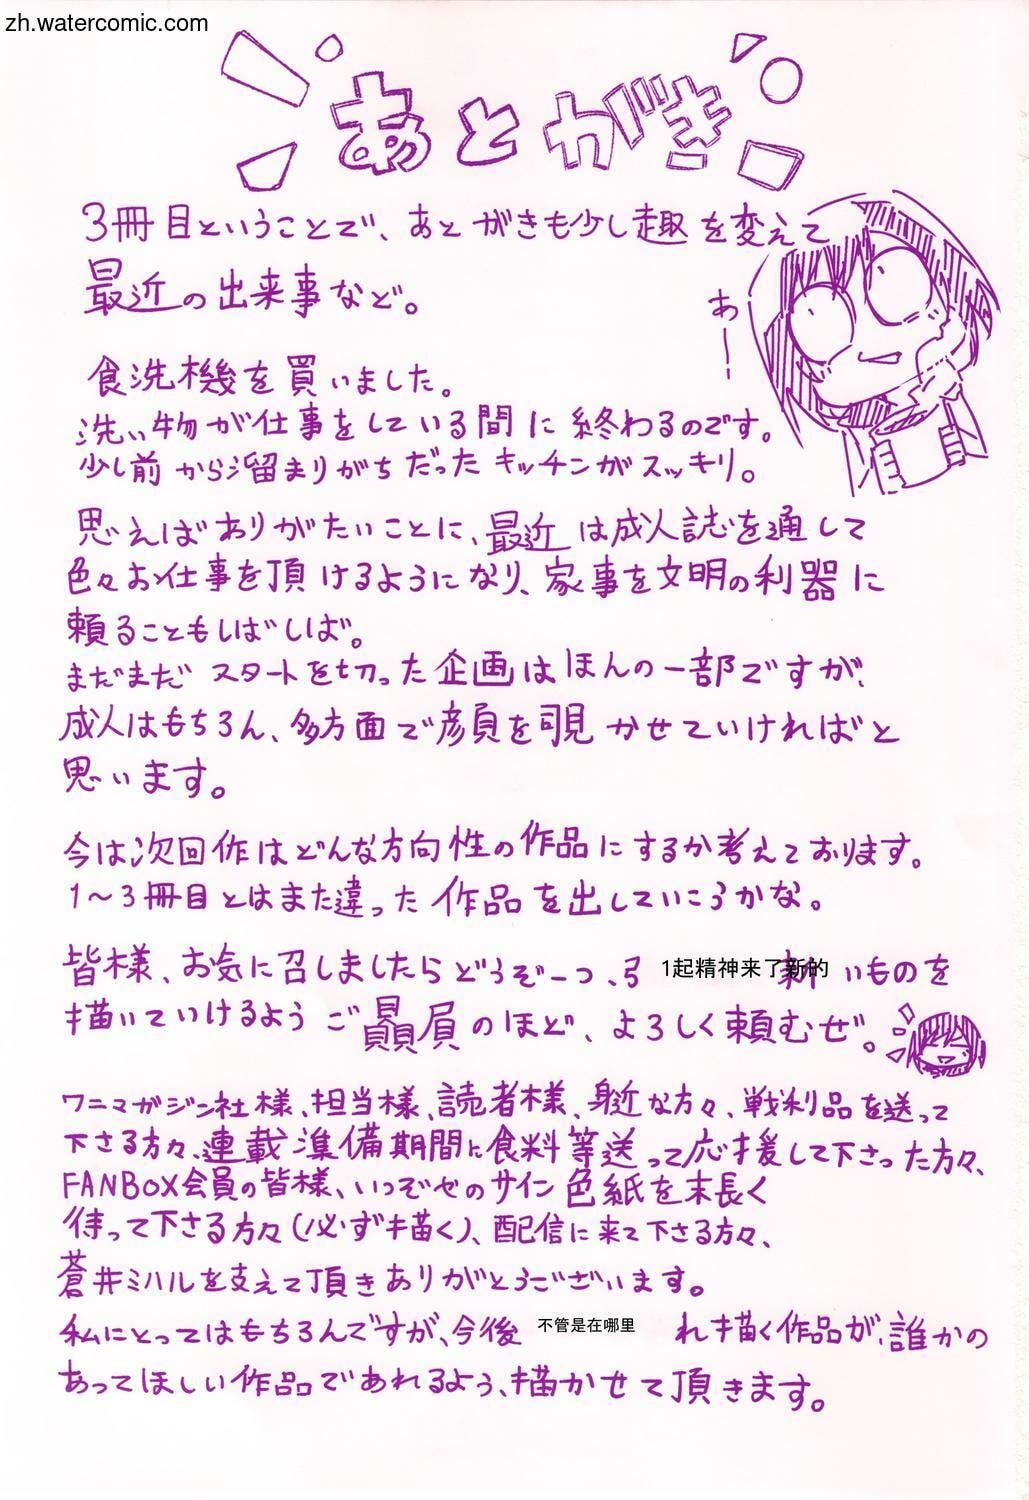 zh.watercomic.com
あとがき
3冊目ということで、あとがきも少し趣を変えて
最近の出来事など。
あーー
食洗機を買いました。
洗い物が仕事をしている間に終わるのです。
少し前から溜まりがちだったキッチンがスッキリ。
思えばありがたいことに、最近は成人誌を通して
色々お仕事を頂けるようになり、家事を文明の利器に
頼ることもしばしば。
まだまだスタートを切った企画はほんの一部ですが、
成人はもちろん、多方面で彦頁を覗かせていければと
思います。
今は次回作はどんな方向性の作品にするか考えております。
1〜3冊目とはまた違った作品を出していこうかな。
皆様、お気に召しましたらどうぞ一つ、弓 1起精神来了新的 いものを
描いていけるようご贔屓のほど、よろしく頼むぜ。
ワニマガジン社様、担当様、読者様、身近な方々、戦利品を送って
下さる方々、連載準備期間に食料等送って応援して下さった方々、
FANBOX会員の皆様、いつぞやのサイン色紙を末長く
待って下さる方々(必ず描く)、配信に来て下さる方々、
蒼井ミハルを支えて頂きありがとうございます。
私にとってはもちろんですが、今後 不管是在哪里 れ描く作品が、誰かの
あってほしい作品であれるよう、描かせて頂きます。